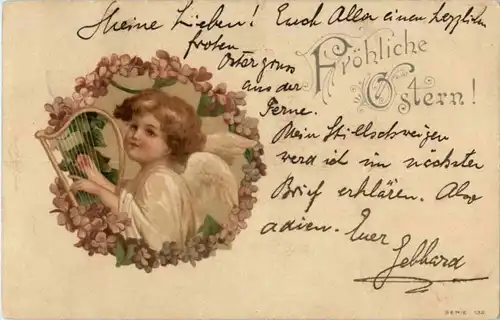 Meine Lieben! Euch Allen einen herzlichen
frohen
Ostergruss
aus der
Ferne.
Mein Stillschweigen
werd ich im nächsten
Brief erklären. Also
adieu. Euer
Gebhard
Fröhliche
Ostern!
SERIE 132